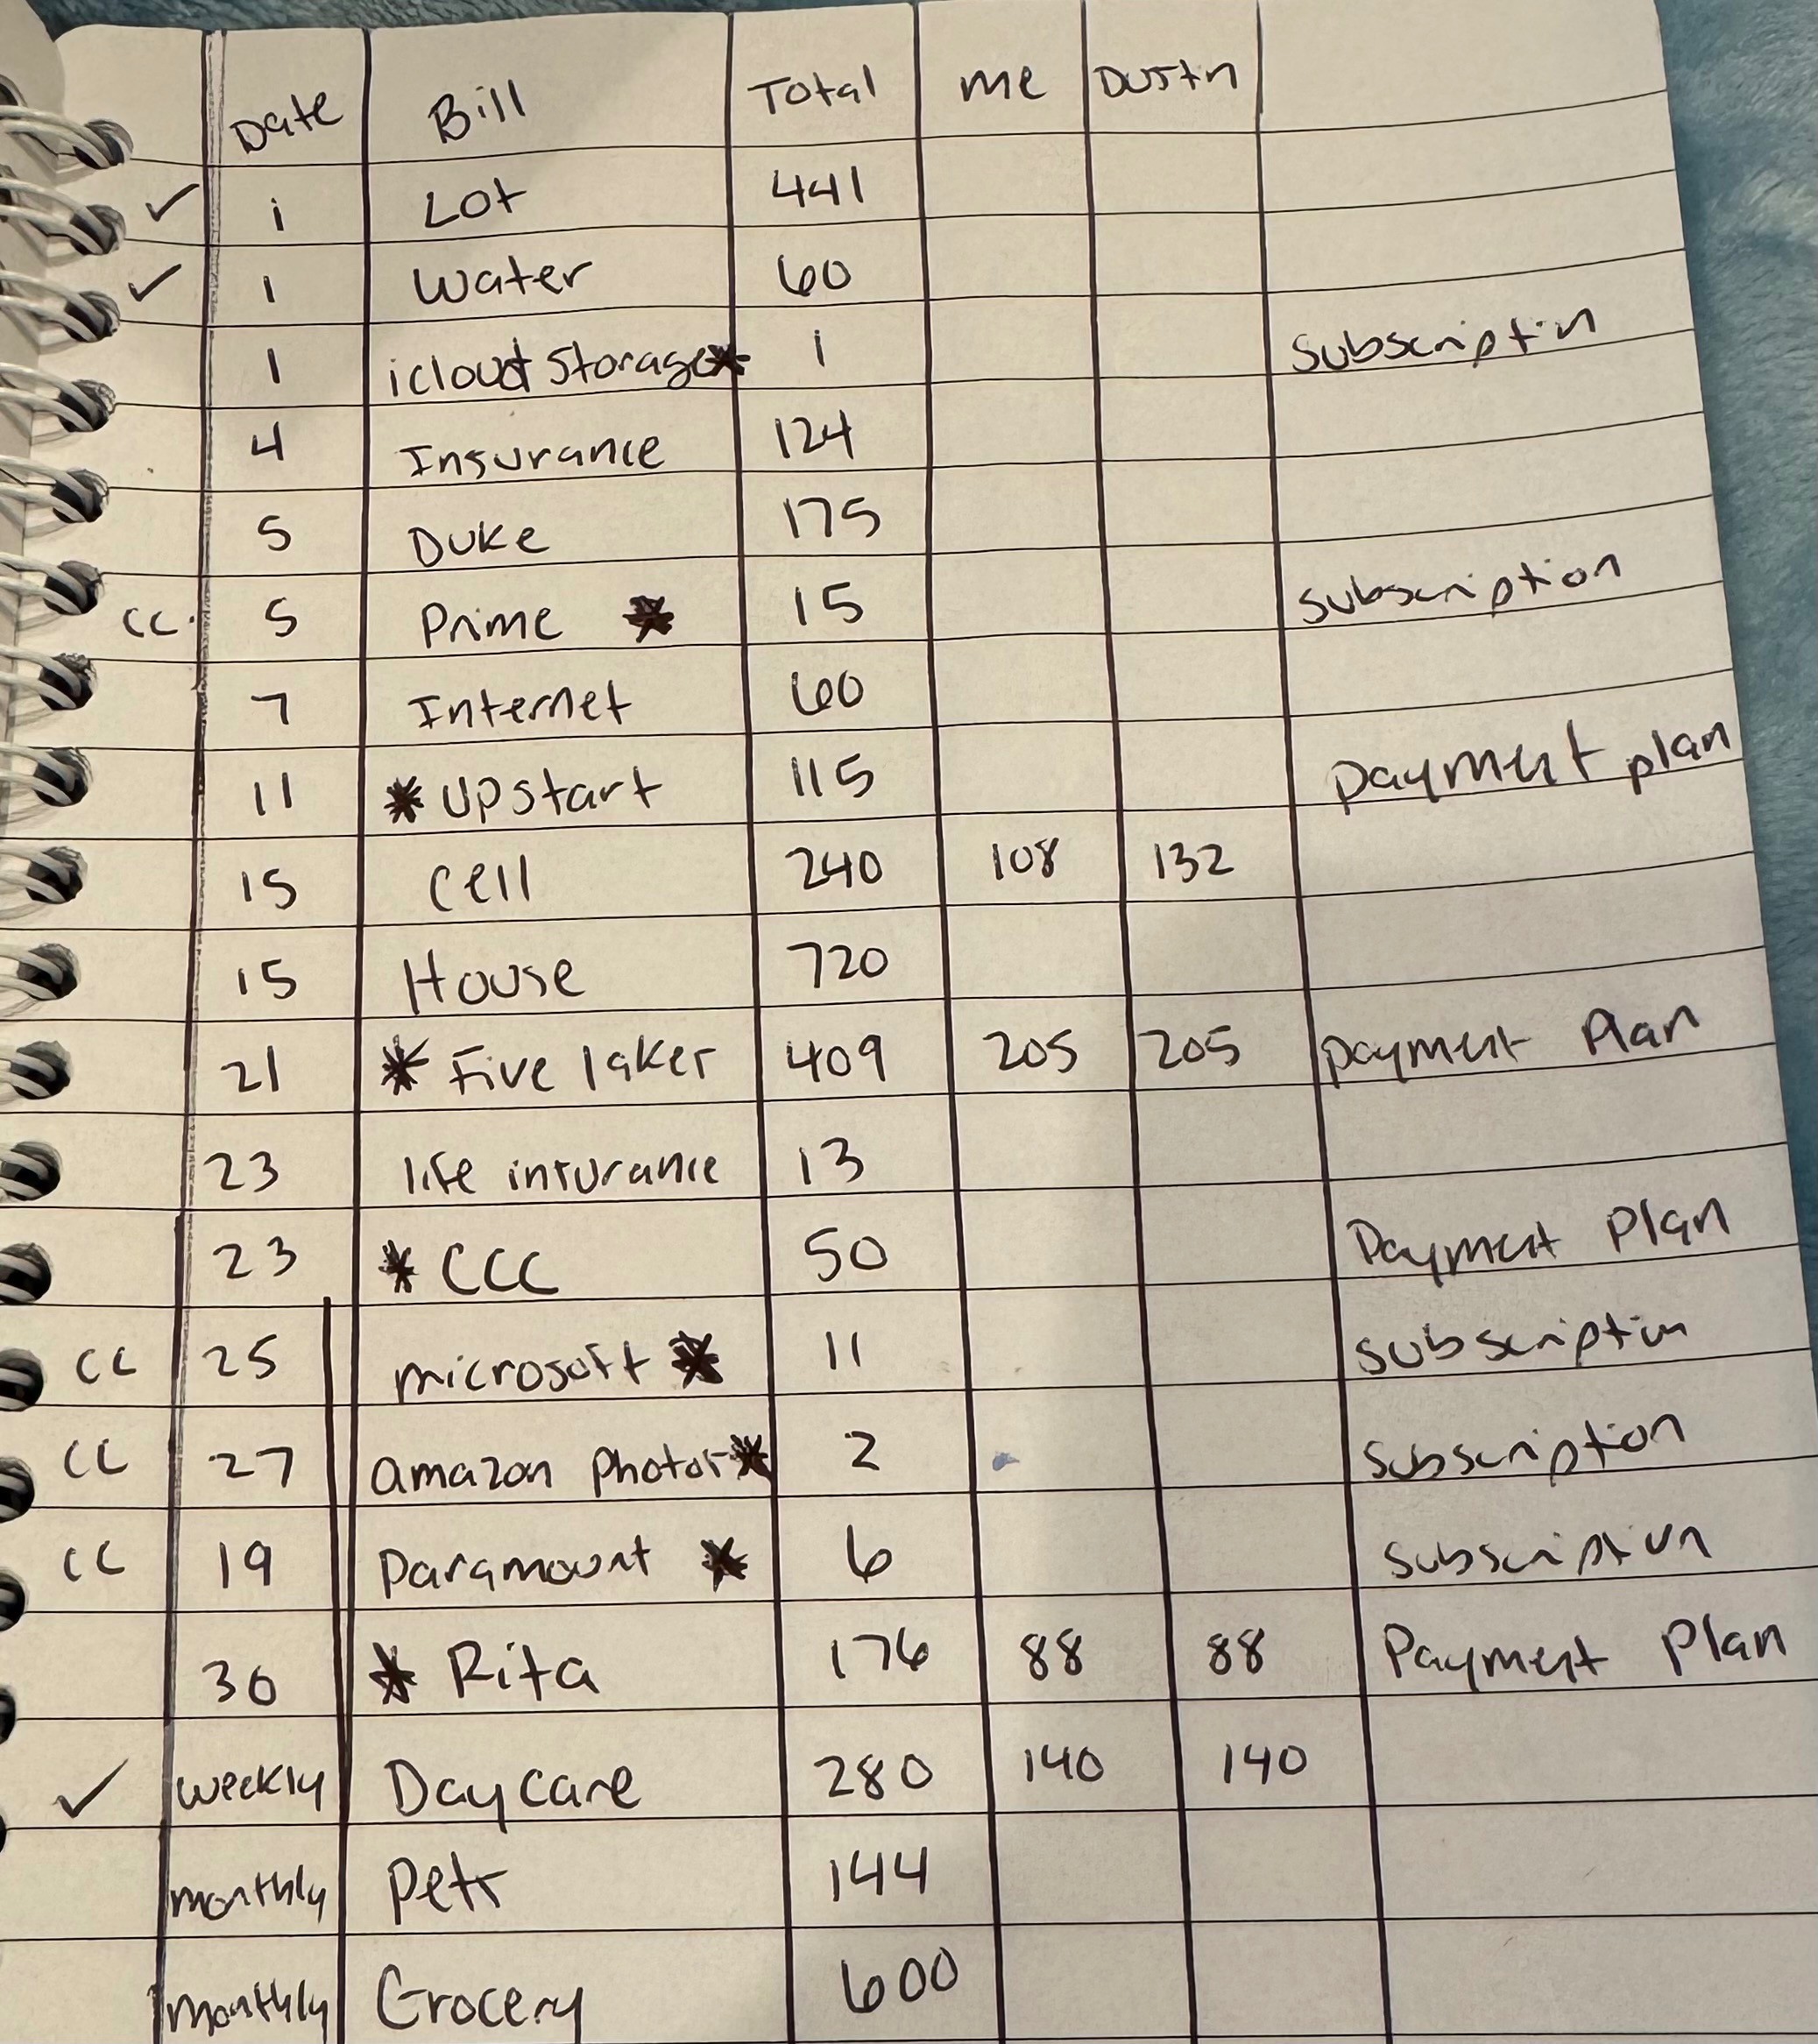 Date Bill Total me Dustn
✓ 1 Lot 441
✓ 1 Water 60
1 icloud Storage* 1 Subscriptin
4 Insurance 124
5 Duke 175
cc. 5 Prime * 15 Subscription
7 Internet 60
11 * Upstart 115 Payment plan
15 Cell 240 108 132
15 House 720
21 * Five laker 409 205 205 payment Plan
23 life insurance 13
23 * CCC 50 Payment Plan
cc 25 microsoft * 11 Subscriptin
cc 27 amazon photos* 2 Subscription
cc 19 Paramount * 6 Subscription
30 * Rita 176 88 88 Payment Plan
✓ weekly Daycare 280 140 140
monthly Pets 144
monthly Grocery 600